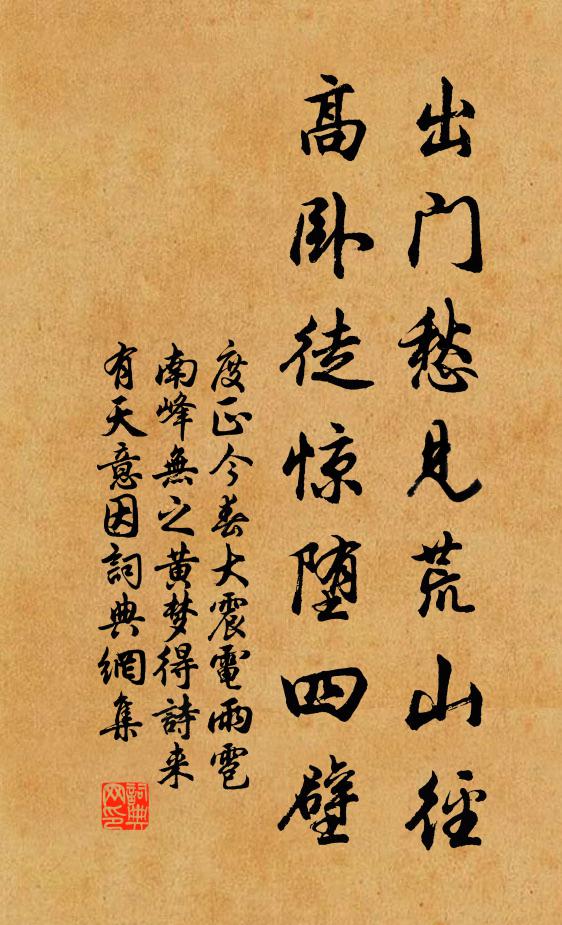 出门愁见荒山径
高卧徒惊堕四壁
度正今春大震電雨雹
南峰無之黄梦得詩来
有天意因詞典網集
詞典网印